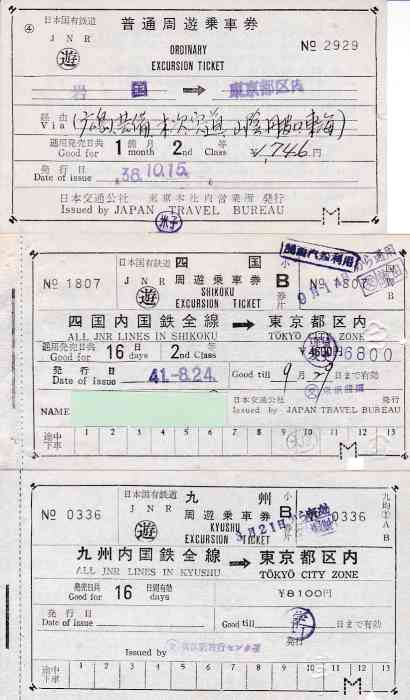 ④ 日本国有鉄道 普通周遊乗車券
J N R
遊 ORDINARY № 2929
EXCURSION TICKET
岩国 → 東京都区内
経由
Via
通用発売日共 1 箇月 2 等 ¥1,746円
Good for month nd Class
発行日 38.10.15.
Date of issue
日本交通公社 東京本社内営業所 発行
Issued by JAPAN TRAVEL BUREAU
米子
日本国有鉄道 四国 小
№ 1807 J N R 周遊乗車券 B 1807
遊 SHIKOKU 券片
EXCURSION TICKET
四国内国鉄全線 → 東京都区内
ALL JNR LINES IN SHIKOKU TŌKYŌ CITY ZONE
通用発売日共 16 日 2 等 ¥ 6800
Good for days nd Class
発行日 41.-8.24. Good till 9月 日まで有効
Date of issue
日本交通公社 発行
NAME Issued by JAPAN TRAVEL BUREAU
途中下車 1 2 3 4 5 6 7 8 9 10 11 12 13
日本国有鉄道 九州 小 九均①AB
№ 0336 J N R 周遊乗車券 B 0336
遊 KYUSHU 券片 3月21日
EXCURSION TICKET
九州内国鉄全線 → 東京都区内
ALL JNR LINES IN KYUSHU TŌKYŌ CITY ZONE
発売日共 16 日間有効 ¥8100円
Good for days
発行日 Good till 日まで有効
Date of issue 発行
Issued by
途中下車 1 2 3 4 5 6 7 8 9 10 11 12 13